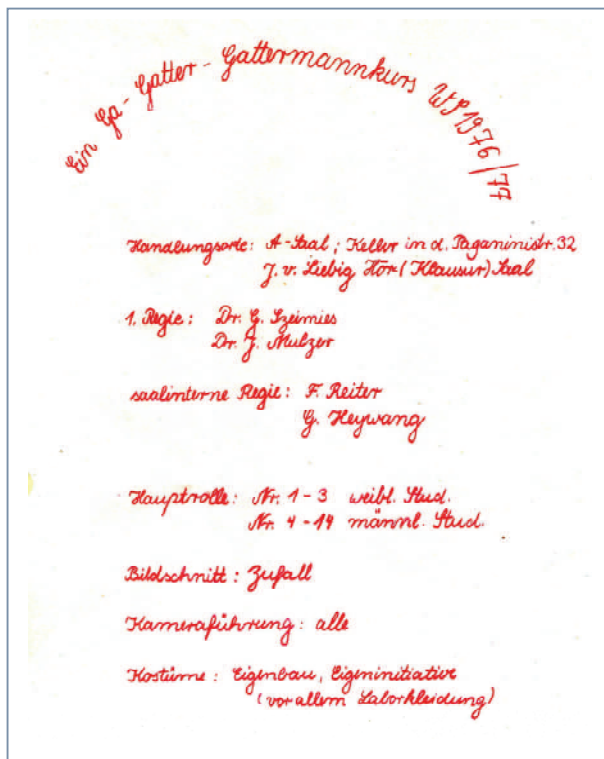 Ein Ga-Gatter-Gattermannkurs WS 1976/77
Handlungsorte: A-Saal; Keller in d. Paganinistr. 32
J. v. Liebig Hör(Klausur)Saal
1. Regie: Dr. G. Szeimies
Dr. J. Mulzer
saalinterne Regie: F. Reiter
G. Heywang
Hauptrolle: Nr. 1-3 weibl. Stud.
Nr. 4-14 männl. Stud.
Bildschnitt: Zufall
Kameraführung: alle
Kostüme: Eigenbau, Eigeninitiative
(vor allem Laborkleidung)